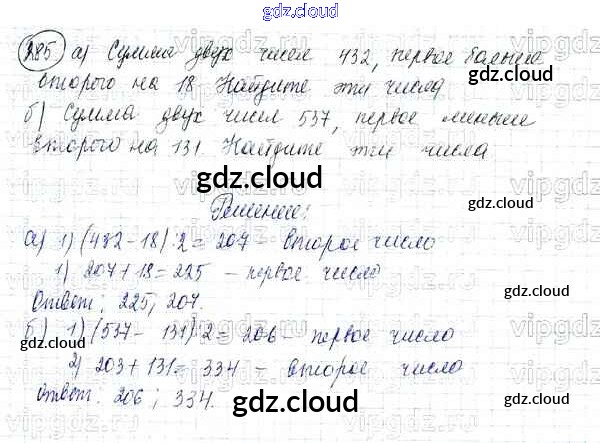 gdz.cloud
285 а) Сумма двух чисел 432, первое больше
второго на 18. Найдите эти числа
gdz.cloud
б) Сумма двух чисел 537, первое меньше
второго на 131. Найдите эти числа
gdz.cloud
Решение:
а) 1) (432 - 18) : 2 = 207 - второе число
1) 207 + 18 = 225 - первое число
gdz.cloud
Ответ: 225; 207.
б) 1) (537 - 131) : 2 = 206 - первое число
gdz.cloud
2) 203 + 131 = 334 - второе число
gdz.cloud
Ответ: 206; 334.
gdz.cloud
vipgdz